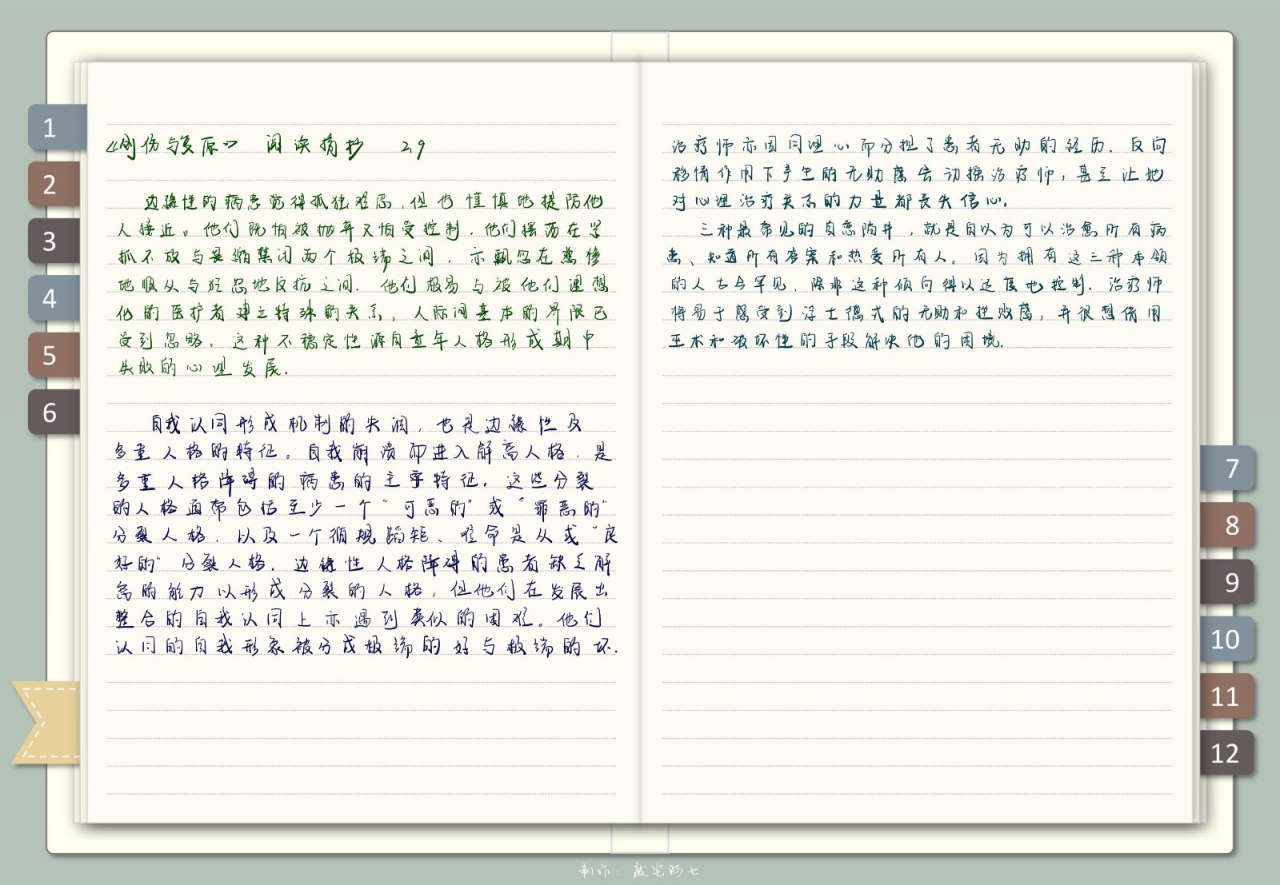 1
2
3
4
5
6
《创伤与复原》 阅读摘抄 29
边缘性的病患觉得孤独难忍,但也谨慎地提防他
人接近。他们既怕被抛弃又怕受控制,他们摆荡在紧
抓不放与畏缩禁闭两个极端之间,亦飘忽在悲惨
地顺从与狂怒地反抗之间。他们极易与被他们理想
化的医护者建立特殊的关系,人际间基本的界限已
受到忽略。这种不稳定性源自童年人格形成期中
失败的心理发展.
自我认同形成机制的失调,也是边缘性及
多重人格的特征。自我崩溃而进入解离人格,是
多重人格障碍的病患的主要特征,这些分裂
的人格通常包括至少一个"可恶的"或"邪恶的"
分裂人格,以及一个循规蹈矩、唯命是从或"良
好的"分裂人格,边缘性人格障碍的患者缺乏解
离的能力以形成分裂的人格,但他们在发展出
整合的自我认同上亦遇到类似的困难。他们
认同的自我形象被分成极端的好与极端的坏.
治疗师亦因同理心而分担了患者无助的经历.反向
移情作用下产生的无助感会动摇治疗师,甚至让她
对心理治疗关系的力量都丧失信心.
三种最常见的自恋陷井,就是自以为可以治愈所有病
患、知道所有答案和热爱所有人。因为拥有这三种本领
的人古今罕见,除非这种倾向得以适度地控制.治疗师
将易于感受到浮士德式的无助和挫败感,并很想借用
巫术和破坏性的手段解决他的困境.
7
8
9
10
11
12
制作: